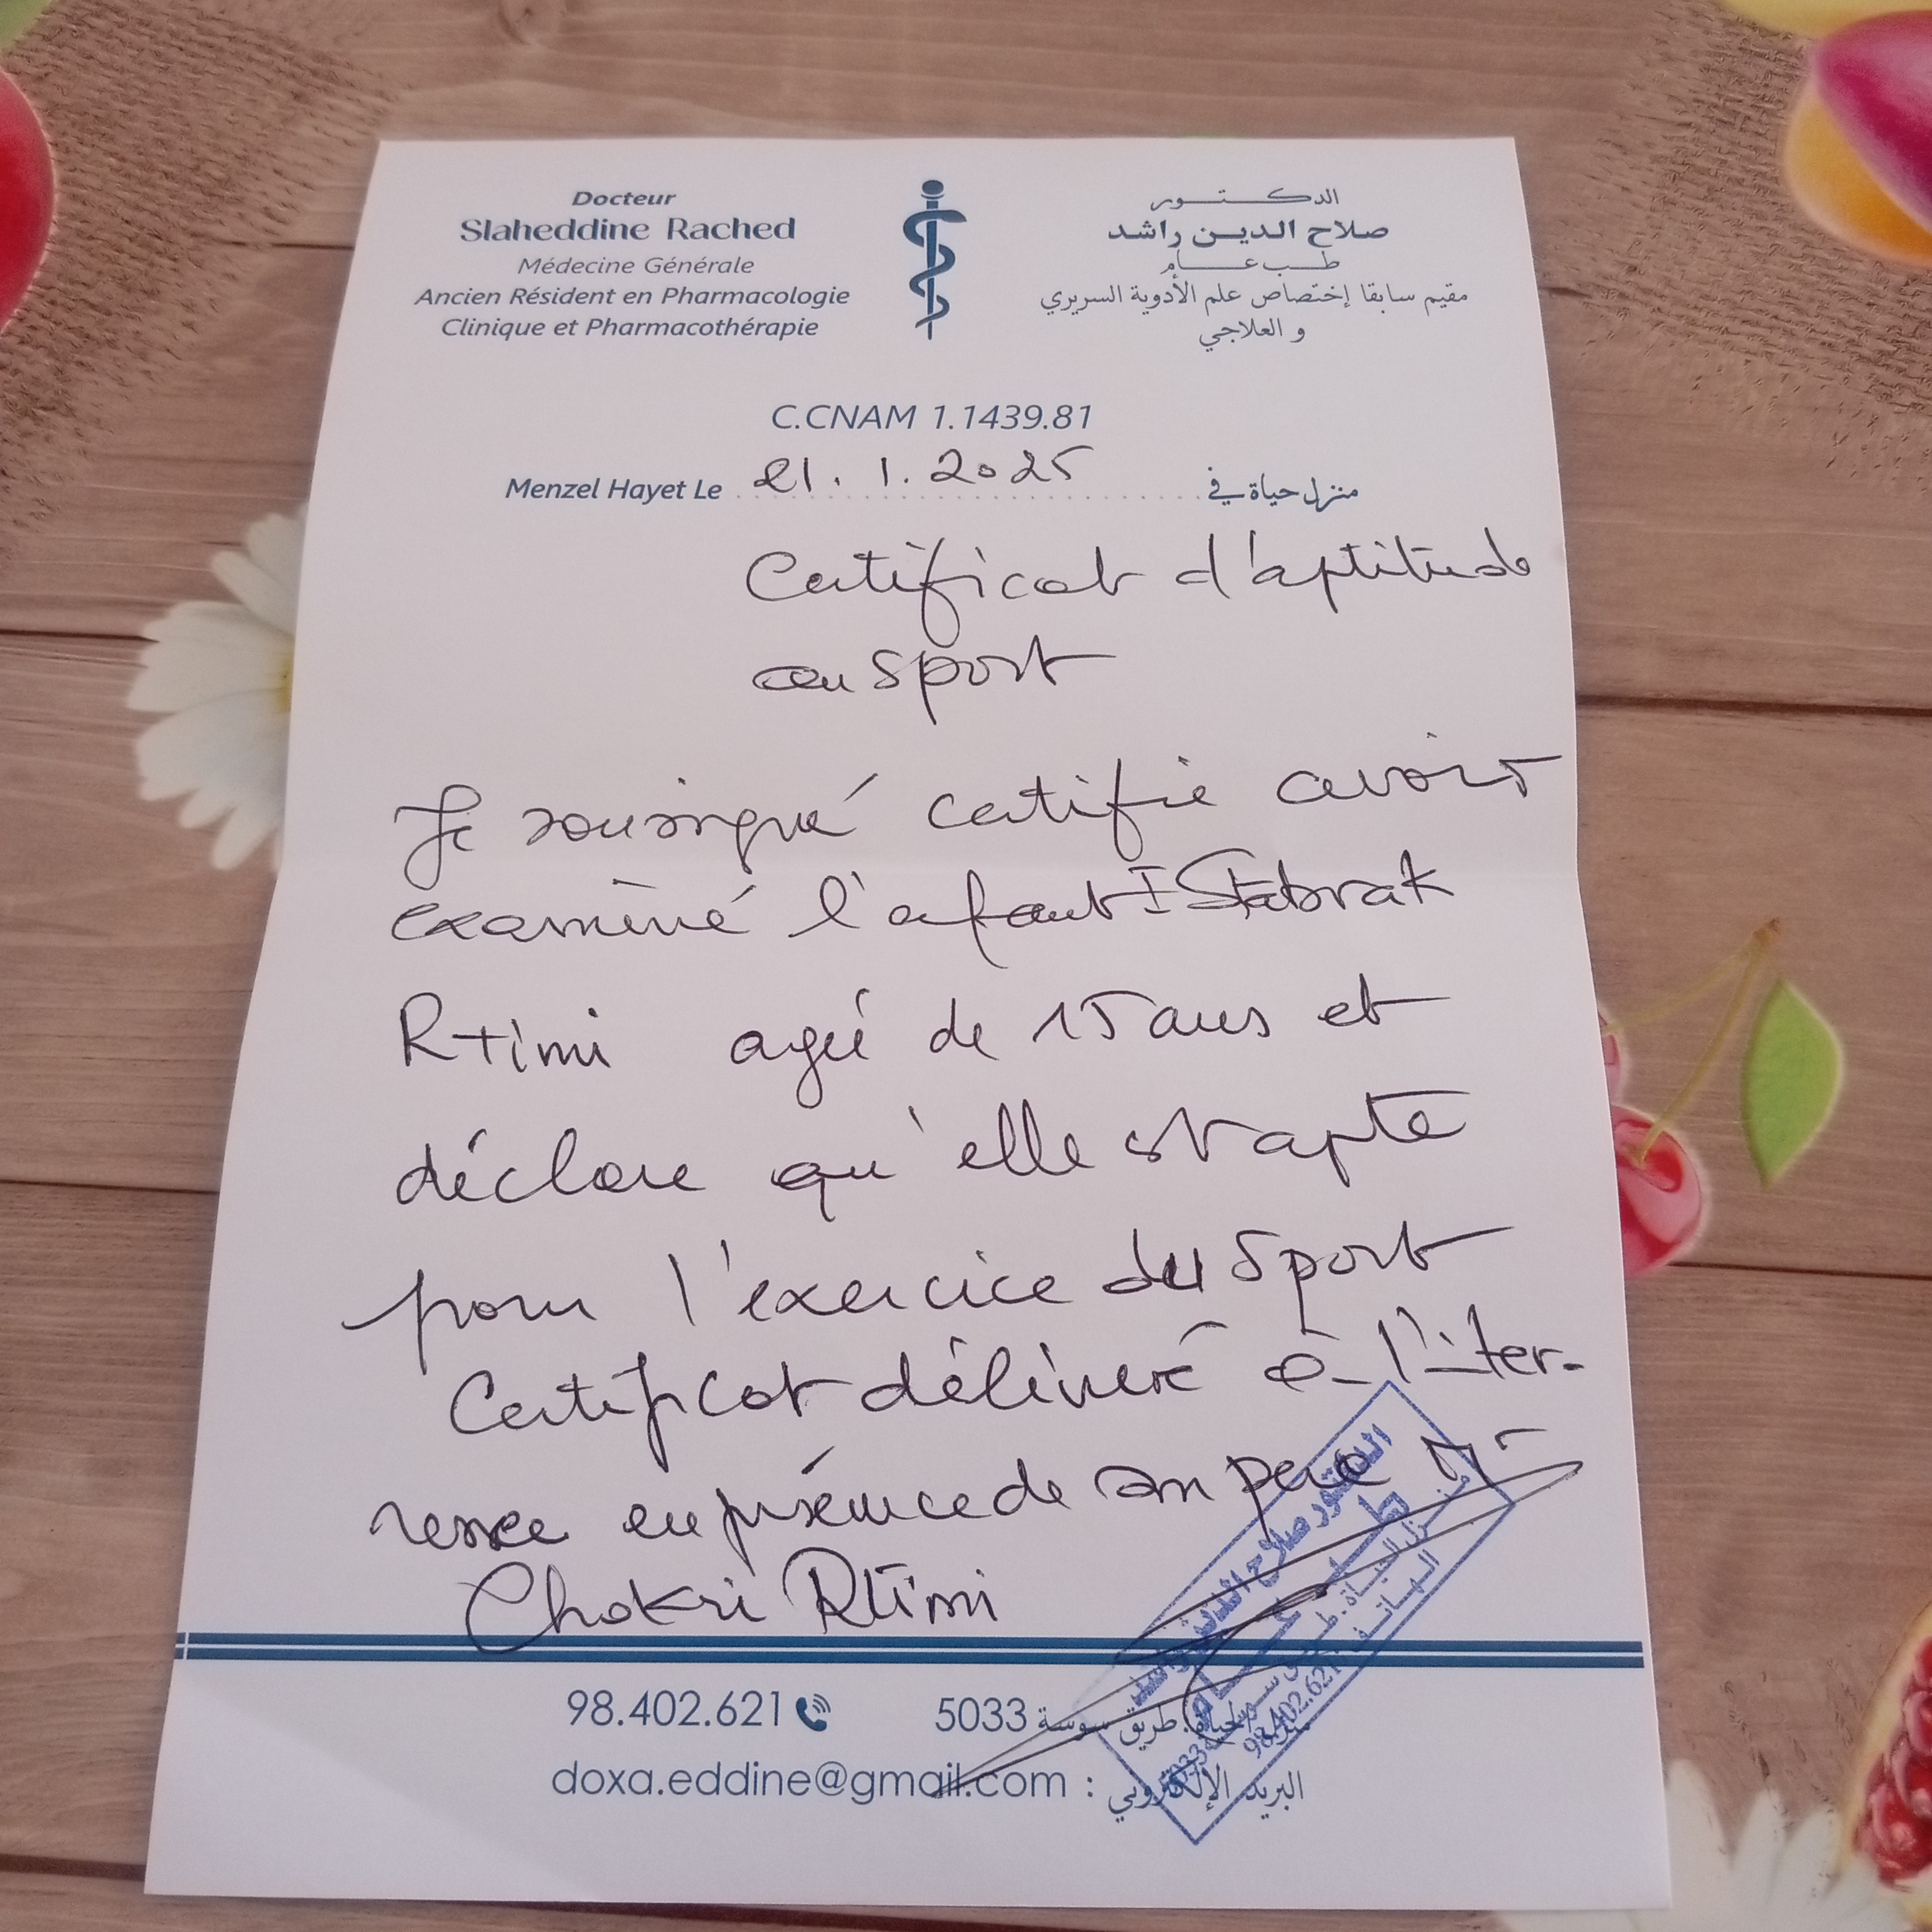 Docteur
Slaheddine Rached
Médecine Générale
Ancien Résident en Pharmacologie
Clinique et Pharmacothérapie
الدكتور
صلاح الدين راشد
طب عام
مقيم سابقا إختصاص علم الأدوية السريري
و العلاجي
C.CNAM 1.1439.81
Menzel Hayet Le 21.1.2025 منزل حياة في
Certificat d'aptitude
au sport
Je soussigné certifie avoir
examiné l'enfant IStabrak
Rtimi agée de 15 ans et
déclare qu'elle est apte
pour l'exercice du sport
Certificat délivré à l'inter-
ressée en présence de son père Mr
Chokri Rtimi
الدكتور صلاح الدين راشد
طب عام
منزل الحياة طريق سوسة 5033
الهاتف: 98.402.621
98.402.621
5033 منزل الحياة. طريق سوسة
doxa.eddine@gmail.com : البريد الإلكتروني